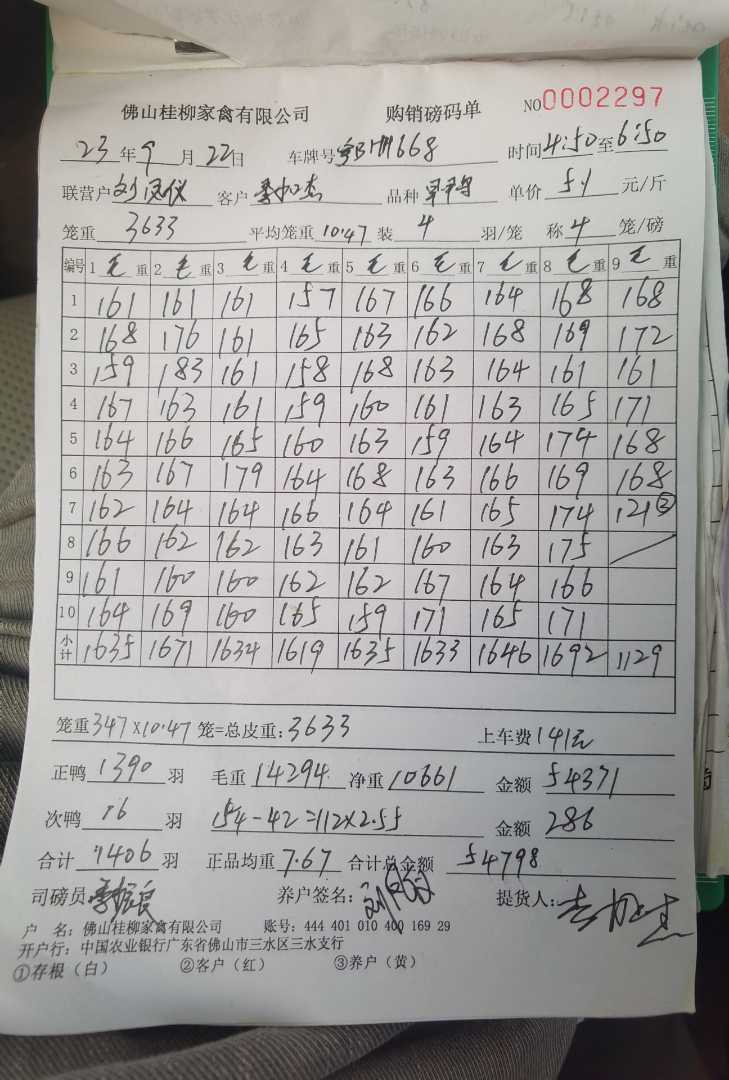 佛山桂柳家禽有限公司 购销磅码单 NO0002297
23年9月22日 车牌号668 时间4:50至6:50
联营户刘 客户 品种 单价5.1元/斤
笼重3633 平均笼重10.47装4羽/笼 称4笼/磅
编号 1毛重 2毛重 3毛重 4毛重 5毛重 6毛重 7毛重 8毛重 9毛重
1 161 161 161 157 167 166 164 168 168
2 168 176 161 165 163 162 168 169 172
3 159 183 161 158 168 163 164 161 161
4 167 163 161 159 160 161 163 165 171
5 164 166 165 160 163 159 164 174 168
6 163 167 179 164 168 163 166 169 168
7 162 164 164 166 164 161 165 174 121③
8 166 162 162 163 161 160 163 175
9 161 160 160 162 162 167 164 166
10 164 169 160 165 159 171 165 171
小计 1635 1671 1634 1619 1635 1633 1646 1692 1129
笼重347×10.47笼=总皮重:3633 上车费141元
正鸭1390羽 毛重14294 净重10661 金额54371
次鸭16羽 154-42=112×2.55 金额286
合计1406羽 正品均重7.67 合计总金额54798
司磅员 养户签名: 提货人:
户 名:佛山桂柳家禽有限公司 账号:444 401 010 400 169 29
开户行:中国农业银行广东省佛山市三水区三水支行
①存根(白) ②客户(红) ③养户(黄)